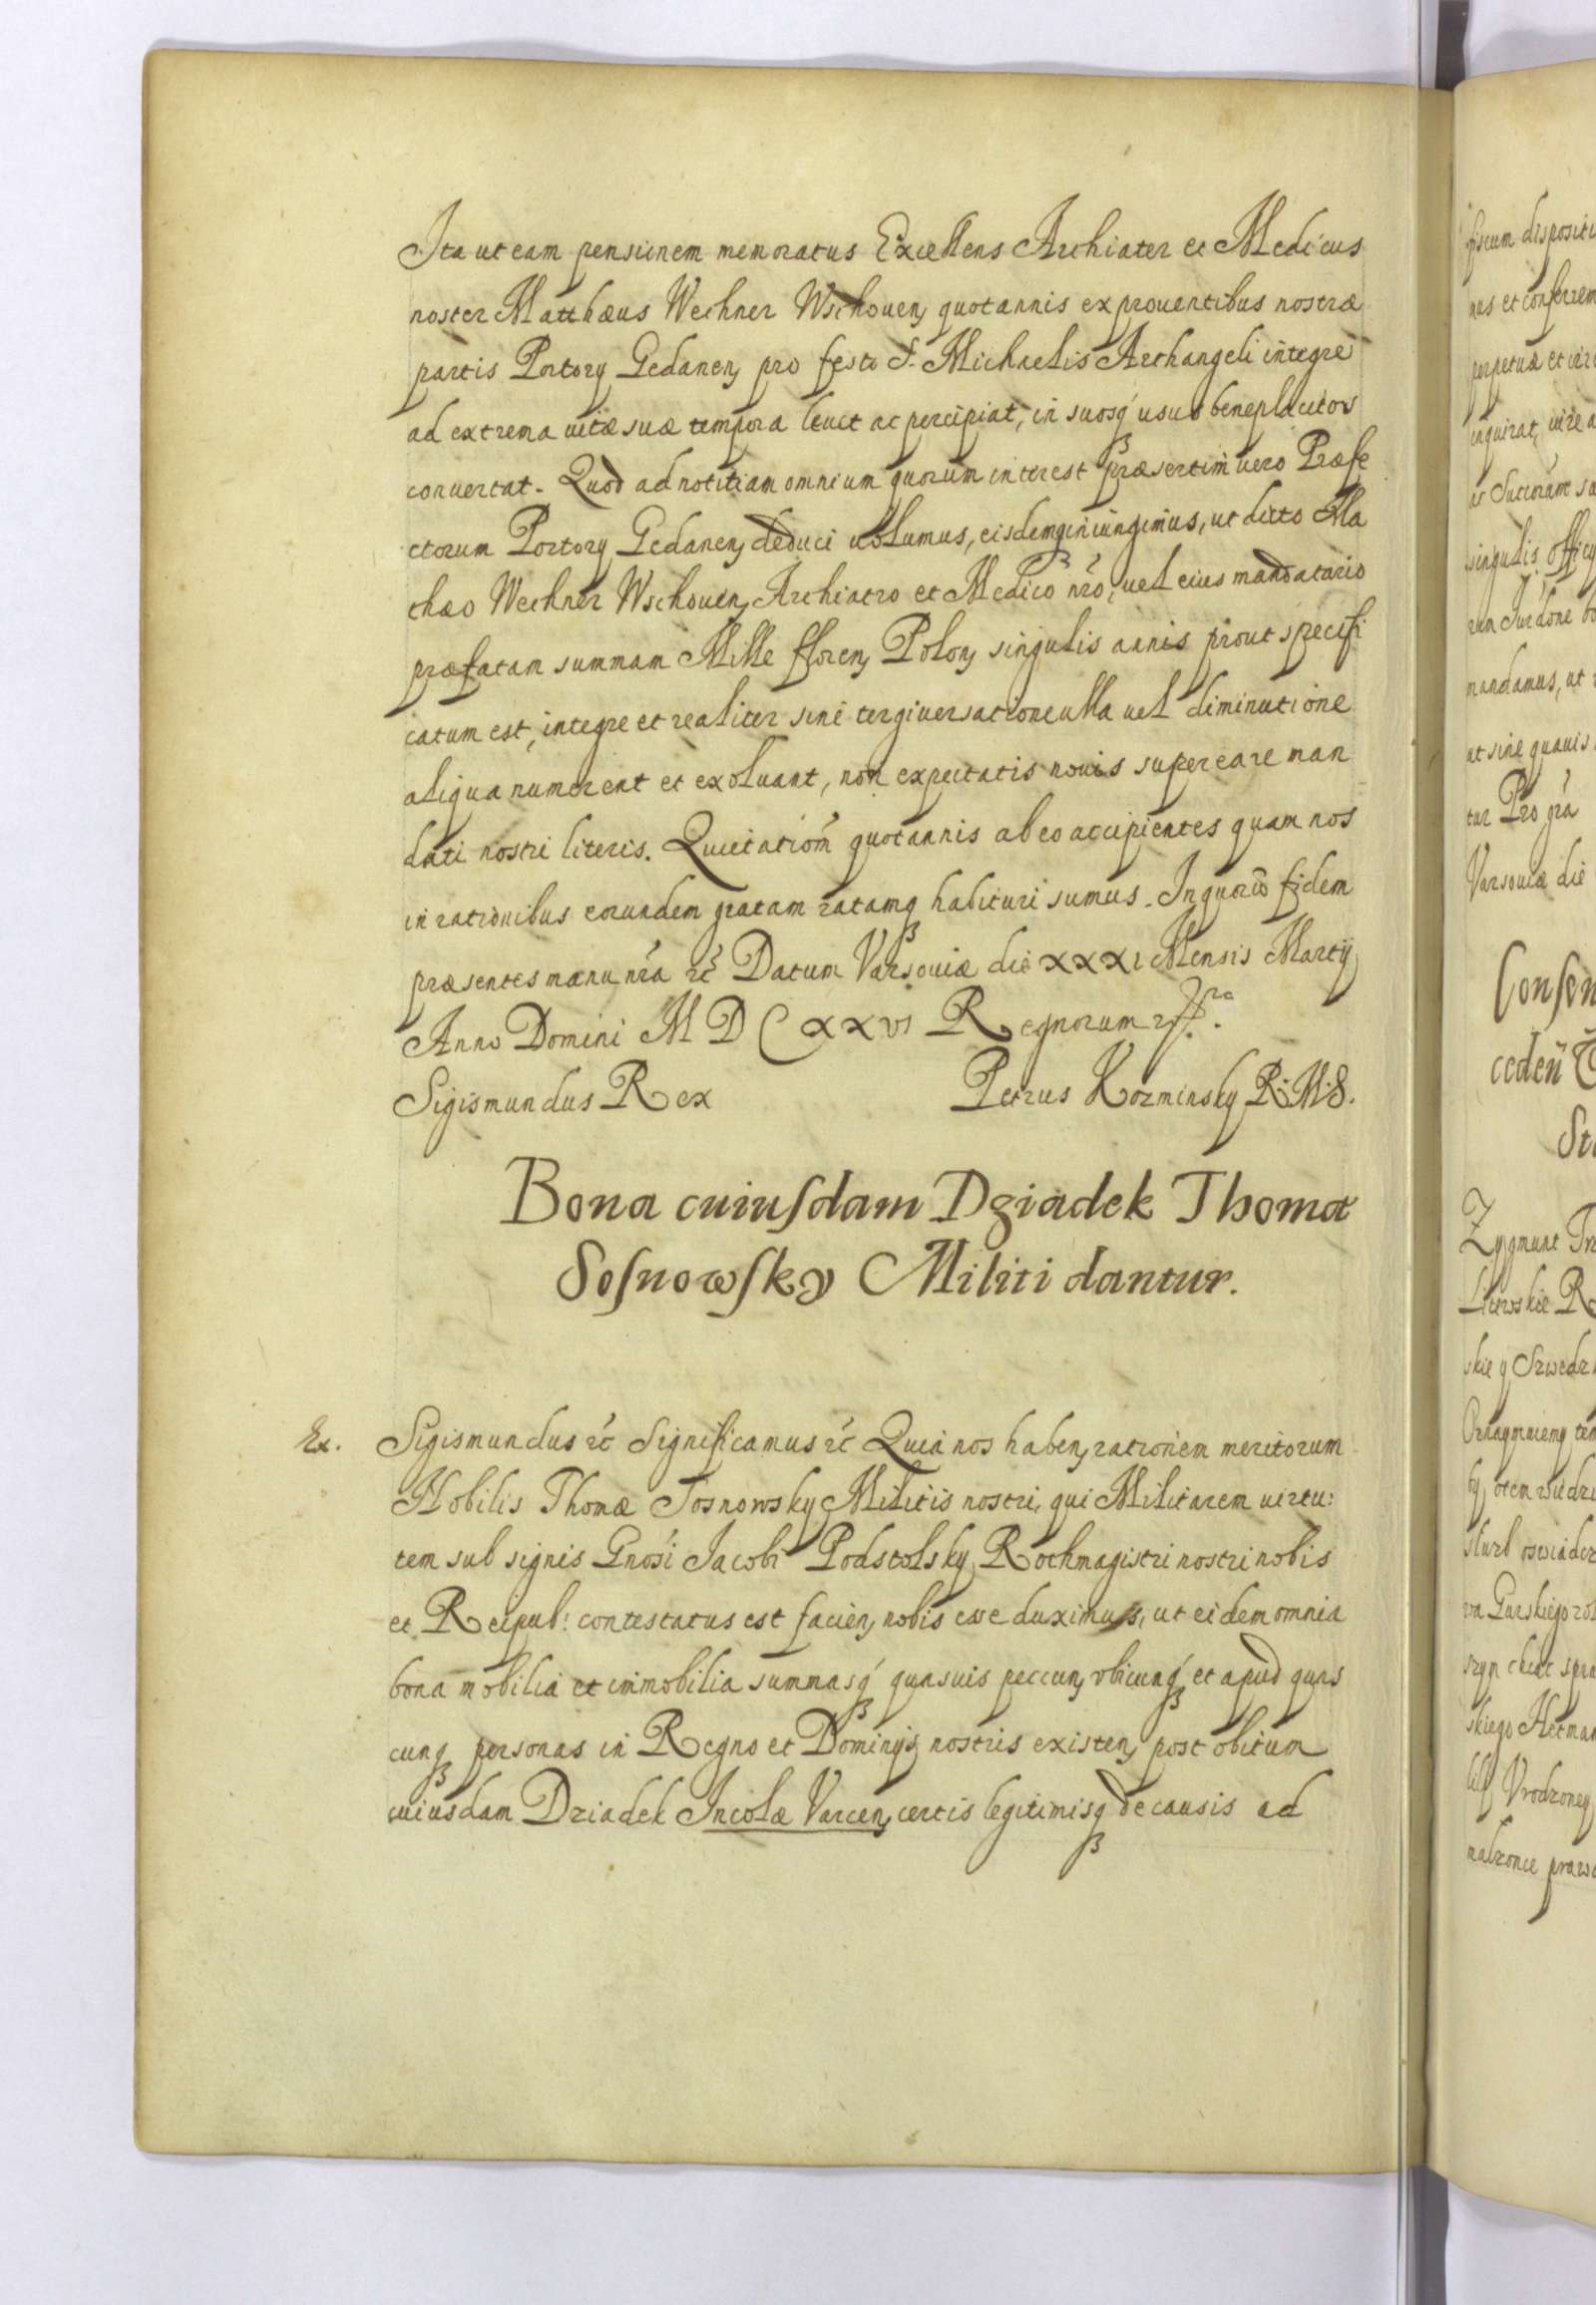 Ita ut eam pensionem memoratus Excellens Archiater et Medicus
noster Matthæus Wechner Wschouen, quotannis ex prouentibus nostræ
partis Portorÿ Gedanen, pro festo S. Michaelis Archangeli integre
ad extrema uitæ suæ tempora leuet ac percipiat, in suosq́ usus beneplacitos
conuertat. Quod ad notitiam omnium quorum interest præsertim uero Præfe
ctorum Portorÿ Gedanen, deduci uolumus, eisdemq iniungimus, ut dicto Ma
thæo Wechner Wschouen, Archiatro et Medico nr̃o, uel eius mandatario
præfatam summam Mille floren, Polon, singulis annis prout specifi
catum est, integre et realiter sine tergiuersatione ulla uel diminutione
aliqua numerent et exoluant, non expectatis nouis super ea re man
dati nostri literis. Quietatiom̃ quotannis ab eo accipientes quam nos
in rationibus eorundem gratam ratamq habituri sumus. In quorũ fidem
præsentes manu nr̃a etc̃ Datum Varsouiæ die XXXI Mensis Martÿ
Anno Domini M D C XXVI Regnorum
Sigismundus Rex Petrus Kozminsky R: M: S.
Bona cuiusdam Dziadek Thomæ
Sosnowsky Militi dantur.
Ex. Sigismundus etc̃ Significamus etc̃ Quia nos haben, rationem meritorum
Nobilis Thomæ Sosnowsky Militis nostri, qui Militarem uirtu:
tem sub signis Gnosi Jacobi Podstolsky Rothmagistri nostri nobis
et Reipub: contestatus est facien, nobis esse duximus, ut eidem omnia
bona mobilia et immobilia summasq́ quasuis peccun, vbicunq́ et apud quas
cunq personas in Regno et Dominÿs nostris existen, post obitum
cuiusdam Dziadek Incolæ Varcen, certis legitimisq de causis ad
fiscum dispositi
nus et conferrem
perpetuæ et
inquirat,
singulis officÿ
mandamus, ut
at sine quauis
tur Pro gr̃a
Varsouiæ die
Consen
ceden̄
Zygmunt
Litewskie
skie y Szwedz
va Gurskiego
skiego Hetman
Vrodzoney
malzonce prawo